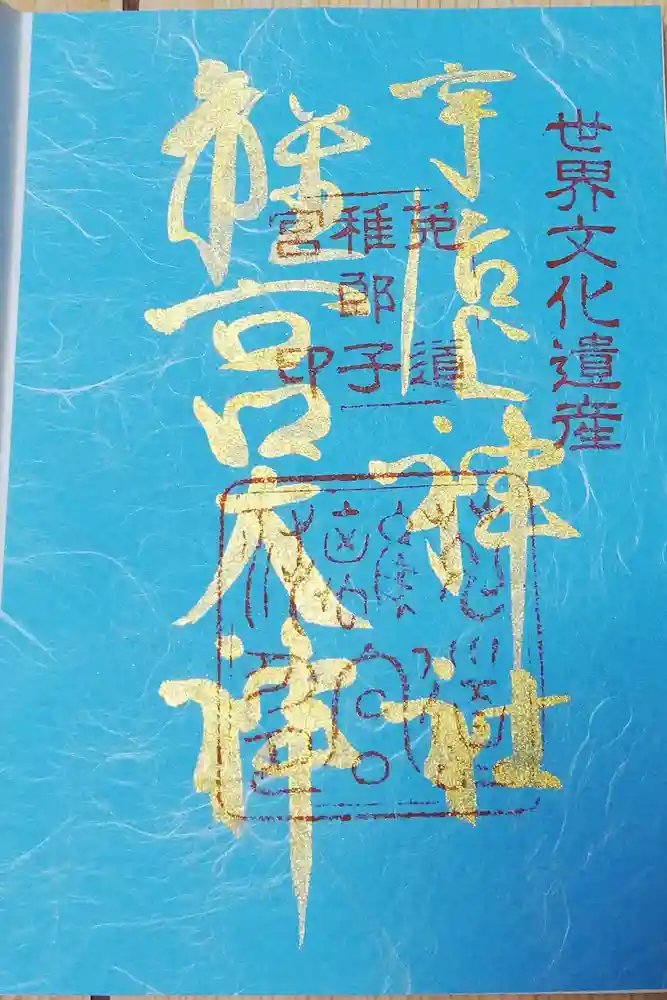 世界文化遺産
宇治神社
離宮大神
菟道
稚郎子
宮印